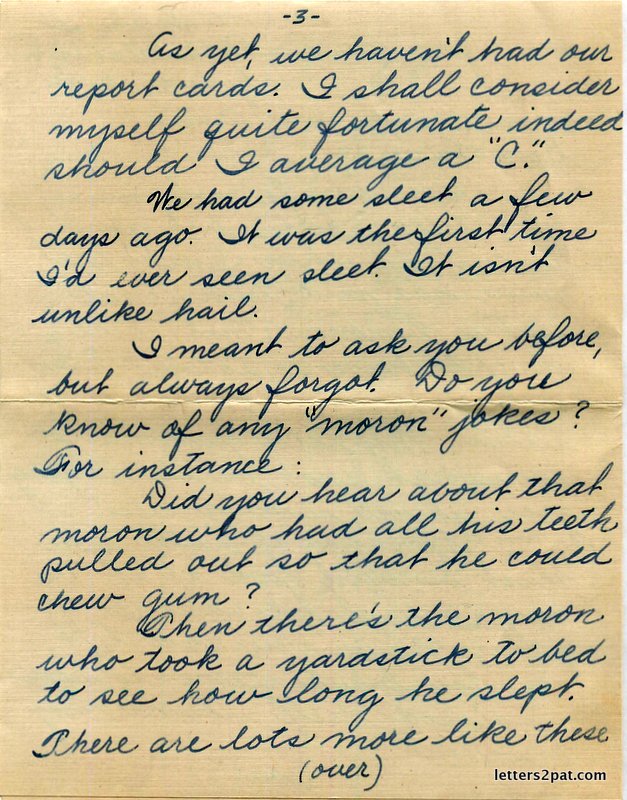 -3-
As yet, we haven't had our
report cards. I shall consider
myself quite fortunate indeed
should I average a "C."
We had some sleet a few
days ago. It was the first time
I'd ever seen sleet. It isn't
unlike hail.
I meant to ask you before,
but always forgot. Do you
know of any "moron" jokes?
For instance:
Did you hear about that
moron who had all his teeth
pulled out so that he could
chew gum?
Then there's the moron
who took a yardstick to bed
to see how long he slept.
There are lots more like these
(over)
letters2pat.com